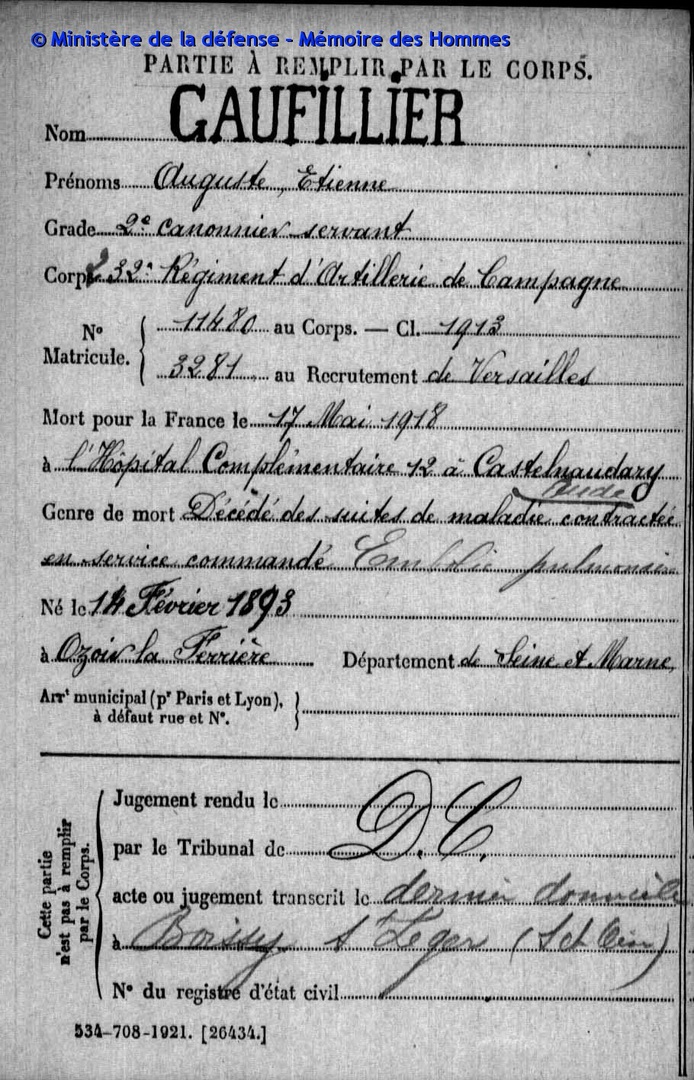 © Ministère de la défense - Mémoire des Hommes
PARTIE À REMPLIR PAR LE CORPS.
Nom GAUFILLIER
Prénoms Auguste, Etienne
Grade 2e canonnier servant
Corps 232e Régiment d'Artillerie de Campagne
No Matricule. { 11480 au Corps. — Cl. 1913
3281 au Recrutement de Versailles
Mort pour la France le 17 Mai 1918
à l'Hôpital Complémentaire 12 à Castelnaudary
Aude
Genre de mort Décédé des suites de maladie contractée
en service commandé Embolie pulmonaire
Né le 14 Février 1893
à Ozoir la Ferrière Département de Seine et Marne
Arrt municipal (pr Paris et Lyon), à défaut rue et No. }
Cette partie n'est pas à remplir par le Corps. {
Jugement rendu le
par le Tribunal de D.C.
acte ou jugement transcrit le dernier domicile
à Boissy St Léger (S et Oise)
No du registre d'état civil
534-708-1921. [26434.]